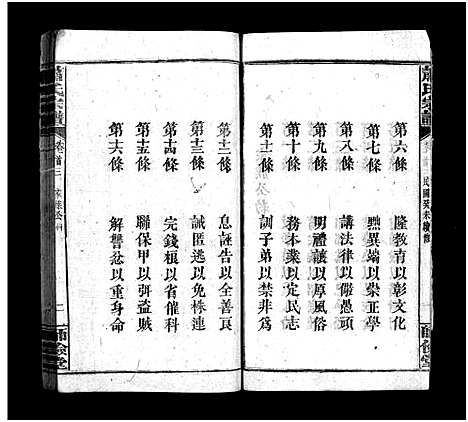 蕭氏宗譜
民國癸未續修
師儉堂
第六條　隆教育以彰文化
第七條　黜異端以崇正學
第八條　講法律以儆愚頑
第九條　明禮讓以厚風俗
第十條　務本業以定民志
第十一條　訓子弟以禁非為
第十二條　息誣告以全善良
第十三條　誡匿逃以免株連
第十四條　完錢糧以省催科
第十五條　聯保甲以弭盜賊
第十六條　解讐忿以重身命
蕭氏宗譜
卷首三
二
師儉堂